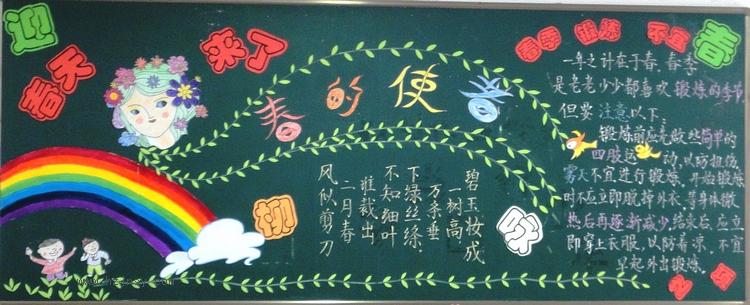 迎
春天
来了
春的使者
咏
柳
碧玉妆成
一树高
万条垂
下绿丝绦
不知细叶
谁裁出
二月春
风似剪刀
春季 锻炼 不宜
春
一年之计在于春,春季
是老老少少都喜欢 锻炼的季节
但要 注意以下:
锻炼前应先做些简单的
四肢运动,以防损伤
雾天不宜进行锻炼。开始锻炼
时不应立即脱掉外衣,等身体微
热后再逐渐减少,结束后,应立
即穿上衣服,以防着凉,不宜
早起外出锻炼.